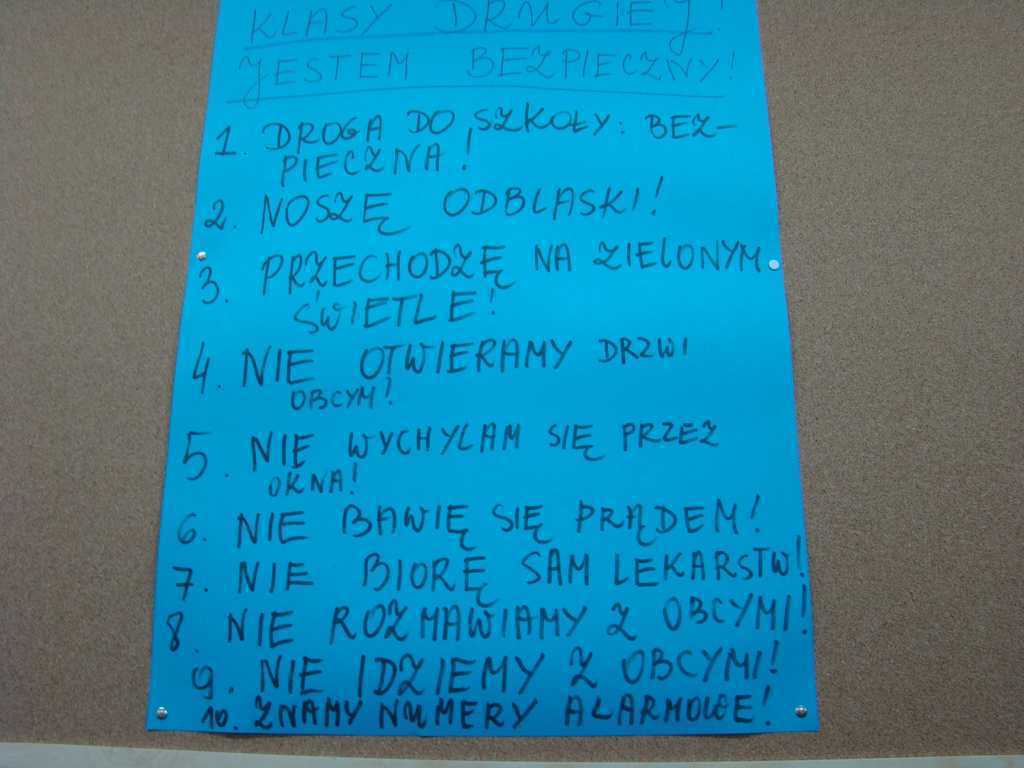 KLASY DRUGIEJ!
JESTEM BEZPIECZNY!
1. DROGA DO SZKOŁY: BEZ-
PIECZNA!
2. NOSZĘ ODBLASKI!
3. PRZECHODZĘ NA ZIELONYM
ŚWIETLE!
4. NIE OTWIERAMY DRZWI
OBCYM!
5. NIE WYCHYLAM SIĘ PRZEZ
OKNA!
6. NIE BAWIĘ SIĘ PRĄDEM!
7. NIE BIORĘ SAM LEKARSTW!
8. NIE ROZMAWIAMY Z OBCYMI!
9. NIE IDZIEMY Z OBCYMI!
10. ZNAMY NUMERY ALARMOWE!